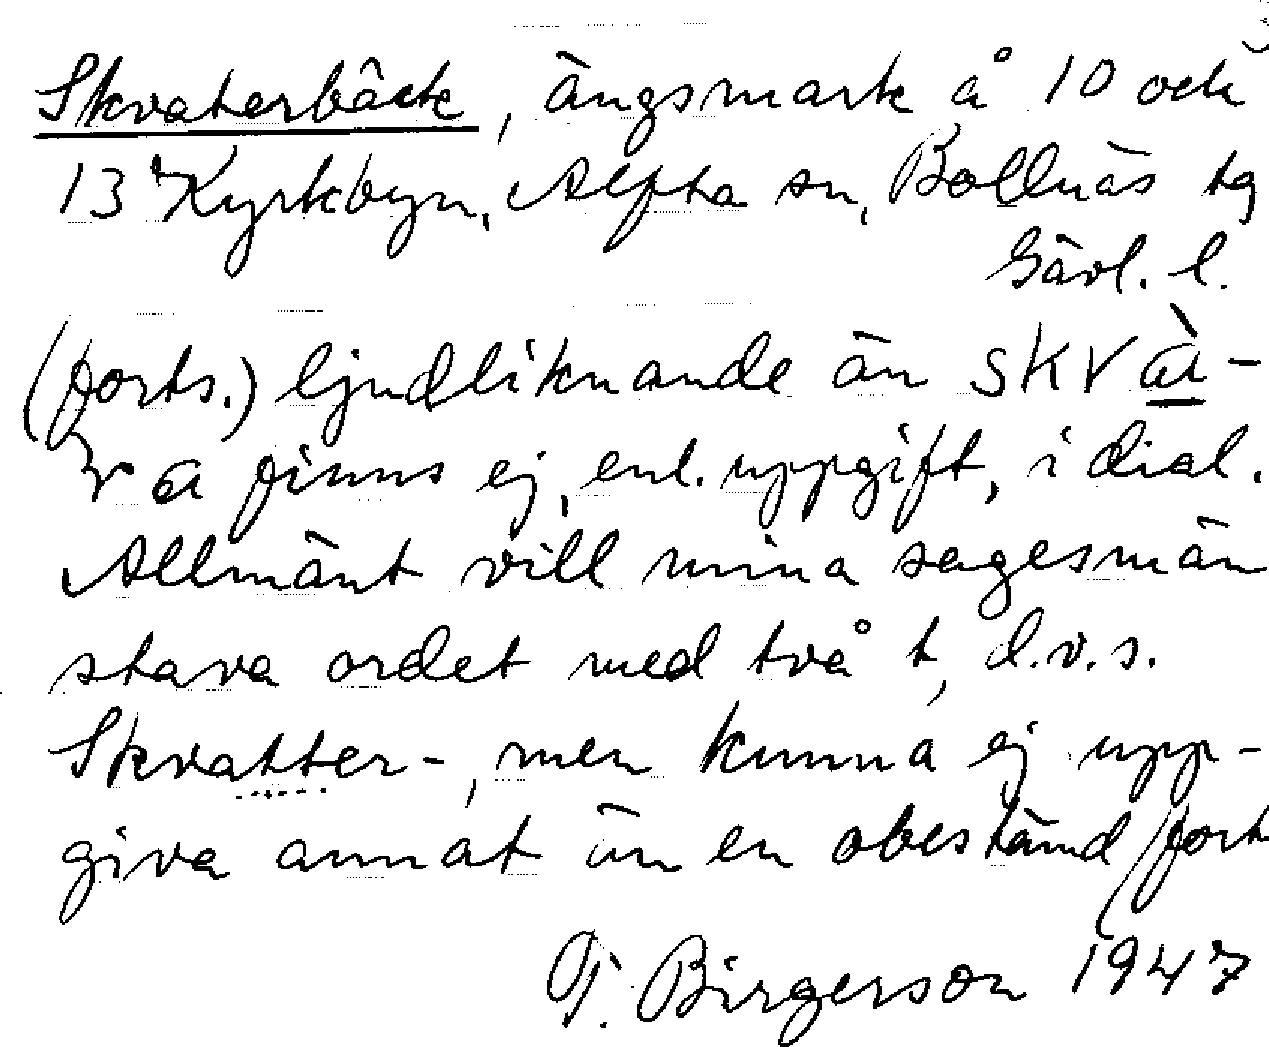 Skvaterbäck, ängsmark å 10 och
13 Kyrkbyn, Alfta sn, Bollnäs tg
Gävl. l.
(forts.) ljudliknande än SKVà-
ra finns ej, enl. uppgift, i dial.
Allmänt vill mina sagesmän
stava ordet med två t, d.v.s.
Skvatter-, men kunna ej upp-
giva annat än en obestämd (fort
T. Birgerson 1947